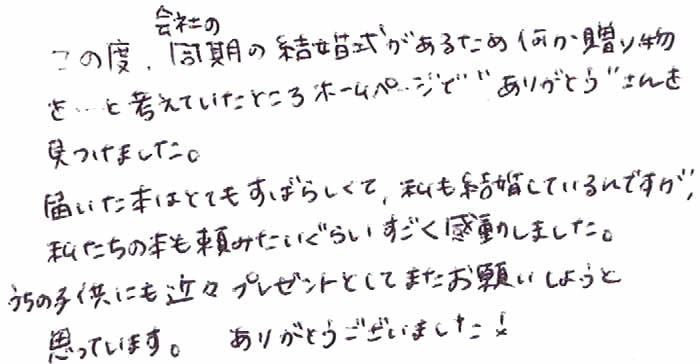 この度、会社の同期の結婚式があるため何か贈り物
を…と考えていたところホームページで"ありがとう"さんを
見つけました。
届いた本はとてもすばらしくて、私も結婚しているんですが、
私たちの本も頼みたいぐらいすごく感動しました。
うちの子供にも近々プレゼントとしてまたお願いしようと
思っています。 ありがとうございました!